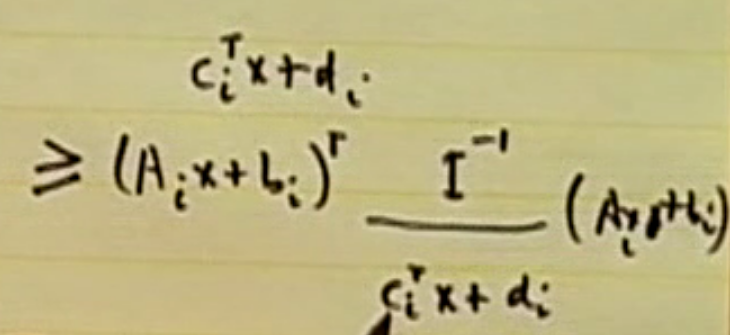 cᵢᵀx+dᵢ
≥ (Aᵢx+bᵢ)ᵀ I⁻¹ / (cᵢᵀx+dᵢ) (Aᵢx+bᵢ)